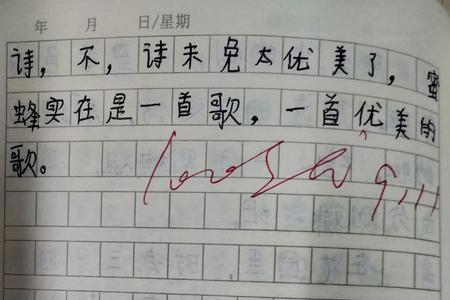 年 月 日/星期
诗，不，诗未免太优美了，蜜
蜂实在是一首歌，一首优美的
歌。